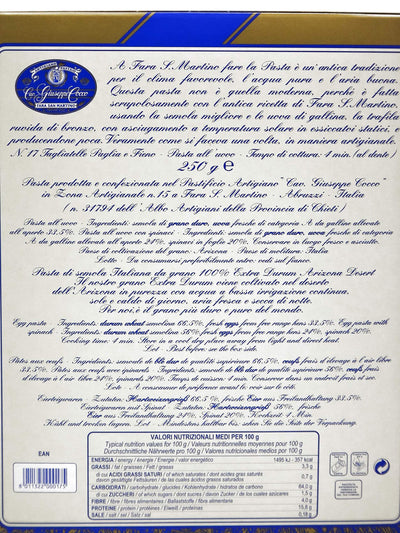 ARTIGIANO PASTAIO
Cav. Giuseppe Cocco
FARA SAN MARTINO
A Fara S. Martino fare la Pasta è un'antica tradizione
per il clima favorevole, l'acqua pura e l'aria buona.
Questa pasta non è quella moderna, perchè è fatta
scrupolosamente con l'antica ricetta di Fara S. Martino,
usando la semola migliore e le uova di gallina, la trafila
ruvida di bronzo, con asciugamento a temperatura solare in essiccatoi statici, e
producendone poca. Veramente come si faceva una volta, in maniera artigianale.
N° 17 Tagliatelle Paglia e Fieno - Pasta all'uovo - Tempo di cottura: 4 min. (al dente)
250 g e
Pasta prodotta e confezionata nel Pastificio Artigiano "Cav. Giuseppe Cocco"
in Zona Artigianale n. 15 a Fara S. Martino - Abruzzi - Italia
(n. 31794 dell'Albo Artigiani della Provincia di Chieti)
Pasta all'uovo - Ingredienti: semola di grano duro, uova fresche di categoria A da galline allevate
all'aperto 33.5%. Pasta all'uovo con spinaci - Ingredienti: semola di grano duro, uova fresche di categoria
A da galline allevate all'aperto 24%, spinaci in foglia 20%. Conservare in luogo fresco e asciutto.
Paese di coltivazione del grano: Arizona - Paese di molitura: Italia
Lotto - Da consumarsi preferibilmente entro: vedi sul fianco.
Pasta di semola Italiana da grano 100% Extra Durum Arizona Desert
Il nostro grano Extra Durum viene coltivato nel deserto
dell'Arizona in purezza con acqua a bassa irrigazione continua,
sole e caldo di giorno, aria fresca e secca di notte.
Per noi, è il grano più duro e puro del mondo.
Egg pasta - Ingredients: durum wheat semolina 66.5%, fresh eggs from free range hens 33.5%. Egg pasta with
spinach - Ingredients: durum wheat semolina 56%, fresh eggs from free range hens 24%, spinach 20%.
Cooking time: 4 min. Store in a cool dry place away from light and direct heat.
Lot - Best before: see box side.
Pâtes aux oeufs - Ingrédients: semoule de blé dur de qualité supérieure 66.5%, oeufs frais d'élevage à l'air libre
33.5%. Pâtes aux oeufs et épinards - Ingrédients: semoule de blé dur de qualité supérieure 56%, oeufs frais
d'élevage à l'air libre 24%, épinards 20%. Cuisson: 4 min. Conserver dans un endroit frais et sec.
Lot - A consommer de préférence avant le: voir sur le côté.
Eierteigwaren - Zutaten: Hartweizengrieß 66.5 %, frische Eier aus Freilandhaltung 33.5%.
Eierteigwaren mit Spinat - Zutaten: Hartweizengrieß 56%, frische
Eier aus Freilandhaltung 24%, Spinat 20%. Kochzeit: 4 Min.
Kühl und trocken lagern. Lot - Mindestens haltbar bis: sehen Sie die Seite der Verpackung.
EAN
8 011322 000175
VALORI NUTRIZIONALI MEDI PER 100 g
Typical nutrition values for 100 g / Valeurs nutritionnelles moyennes pour 100 g
Durchschnittliche Nährwerte pro 100 g / Valores nutricionales medios por 100 g
ENERGIA / energy / énergie / Energie / valor energético 1495 kJ - 357 kcal
GRASSI / fat / graisses / Fett / grasas 3,3 g
di cui ACIDI GRASSI SATURI / of which saturates / dont acides gras saturés
davon gesättigte Fettsäuren / de las cuales saturadas 0,7 g
CARBOIDRATI / carbohydrate / glucides / Kohlenhydrate / hidratos de carbono 64,0 g
di cui ZUCCHERI / of which sugars / dont sucres / davon Zucker / de los cuales azúcares 1,5 g
FIBRE / fibre / fibres alimentaires / Ballaststoffe / fibra alimentaria 4,0 g
PROTEINE / protein / protéines / Eiweiß / proteínas 15,8 g
SALE / salt / sel / Salz / sal 0,18 g